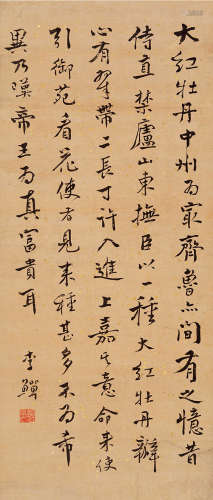 大紅牡丹中州為最齊魯亦間有之憶昔
侍直禁廬山東撫臣以一種大紅牡丹瓣
心有翠帶二長許入進上嘉其意命來使
引御苑看花使者見來種甚多不為希
異乃嘆帝王為真富貴耳
李鱓